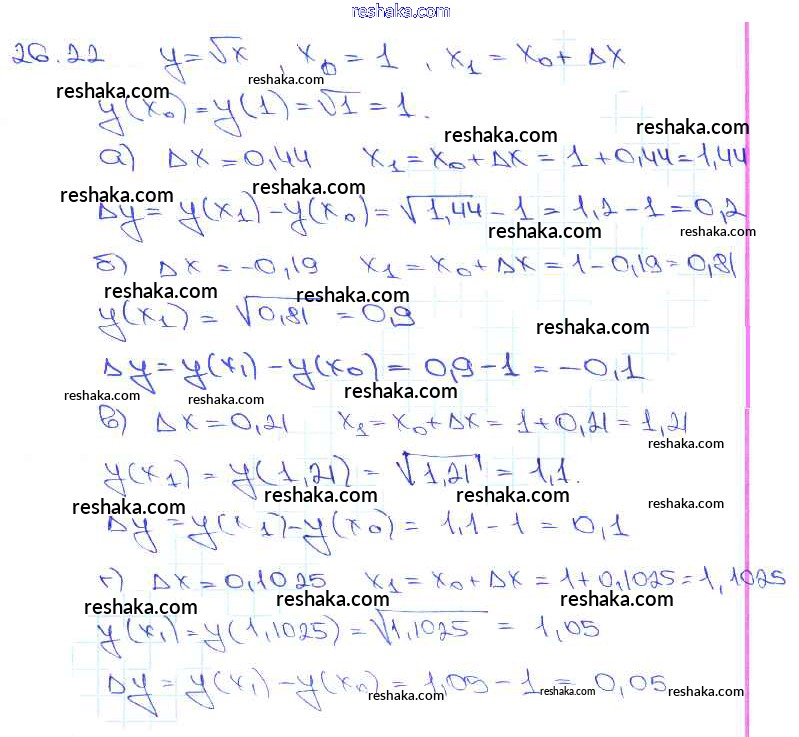 reshaka.com
26.22 y=√x, x₀=1, x₁=x₀+Δx
reshaka.com reshaka.com
y(x₀)=y(1)=√1=1.
reshaka.com reshaka.com
а) Δx=0,44 x₁=x₀+Δx=1+0,44=1,44
reshaka.com reshaka.com
Δy=y(x₁)-y(x₀)=√1,44-1=1,2-1=0,2
reshaka.com reshaka.com
б) Δx=-0,19 x₁=x₀+Δx=1-0,19=0,81
reshaka.com reshaka.com
y(x₁)=√0,81=0,9
reshaka.com
Δy=y(x₁)-y(x₀)=0,9-1=-0,1
reshaka.com reshaka.com reshaka.com
в) Δx=0,21 x₁=x₀+Δx=1+0,21=1,21
reshaka.com
y(x₁)=y(1,21)=√1,21=1,1.
reshaka.com reshaka.com reshaka.com reshaka.com
Δy=y(x₁)-y(x₀)=1,1-1=0,1
reshaka.com
г) Δx=0,1025 x₁=x₀+Δx=1+0,1025=1,1025
reshaka.com reshaka.com reshaka.com
y(x₁)=y(1,1025)=√1,1025=1,05
Δy=y(x₁)-y(x₀)=1,05-1=0,05
reshaka.com reshaka.com reshaka.com